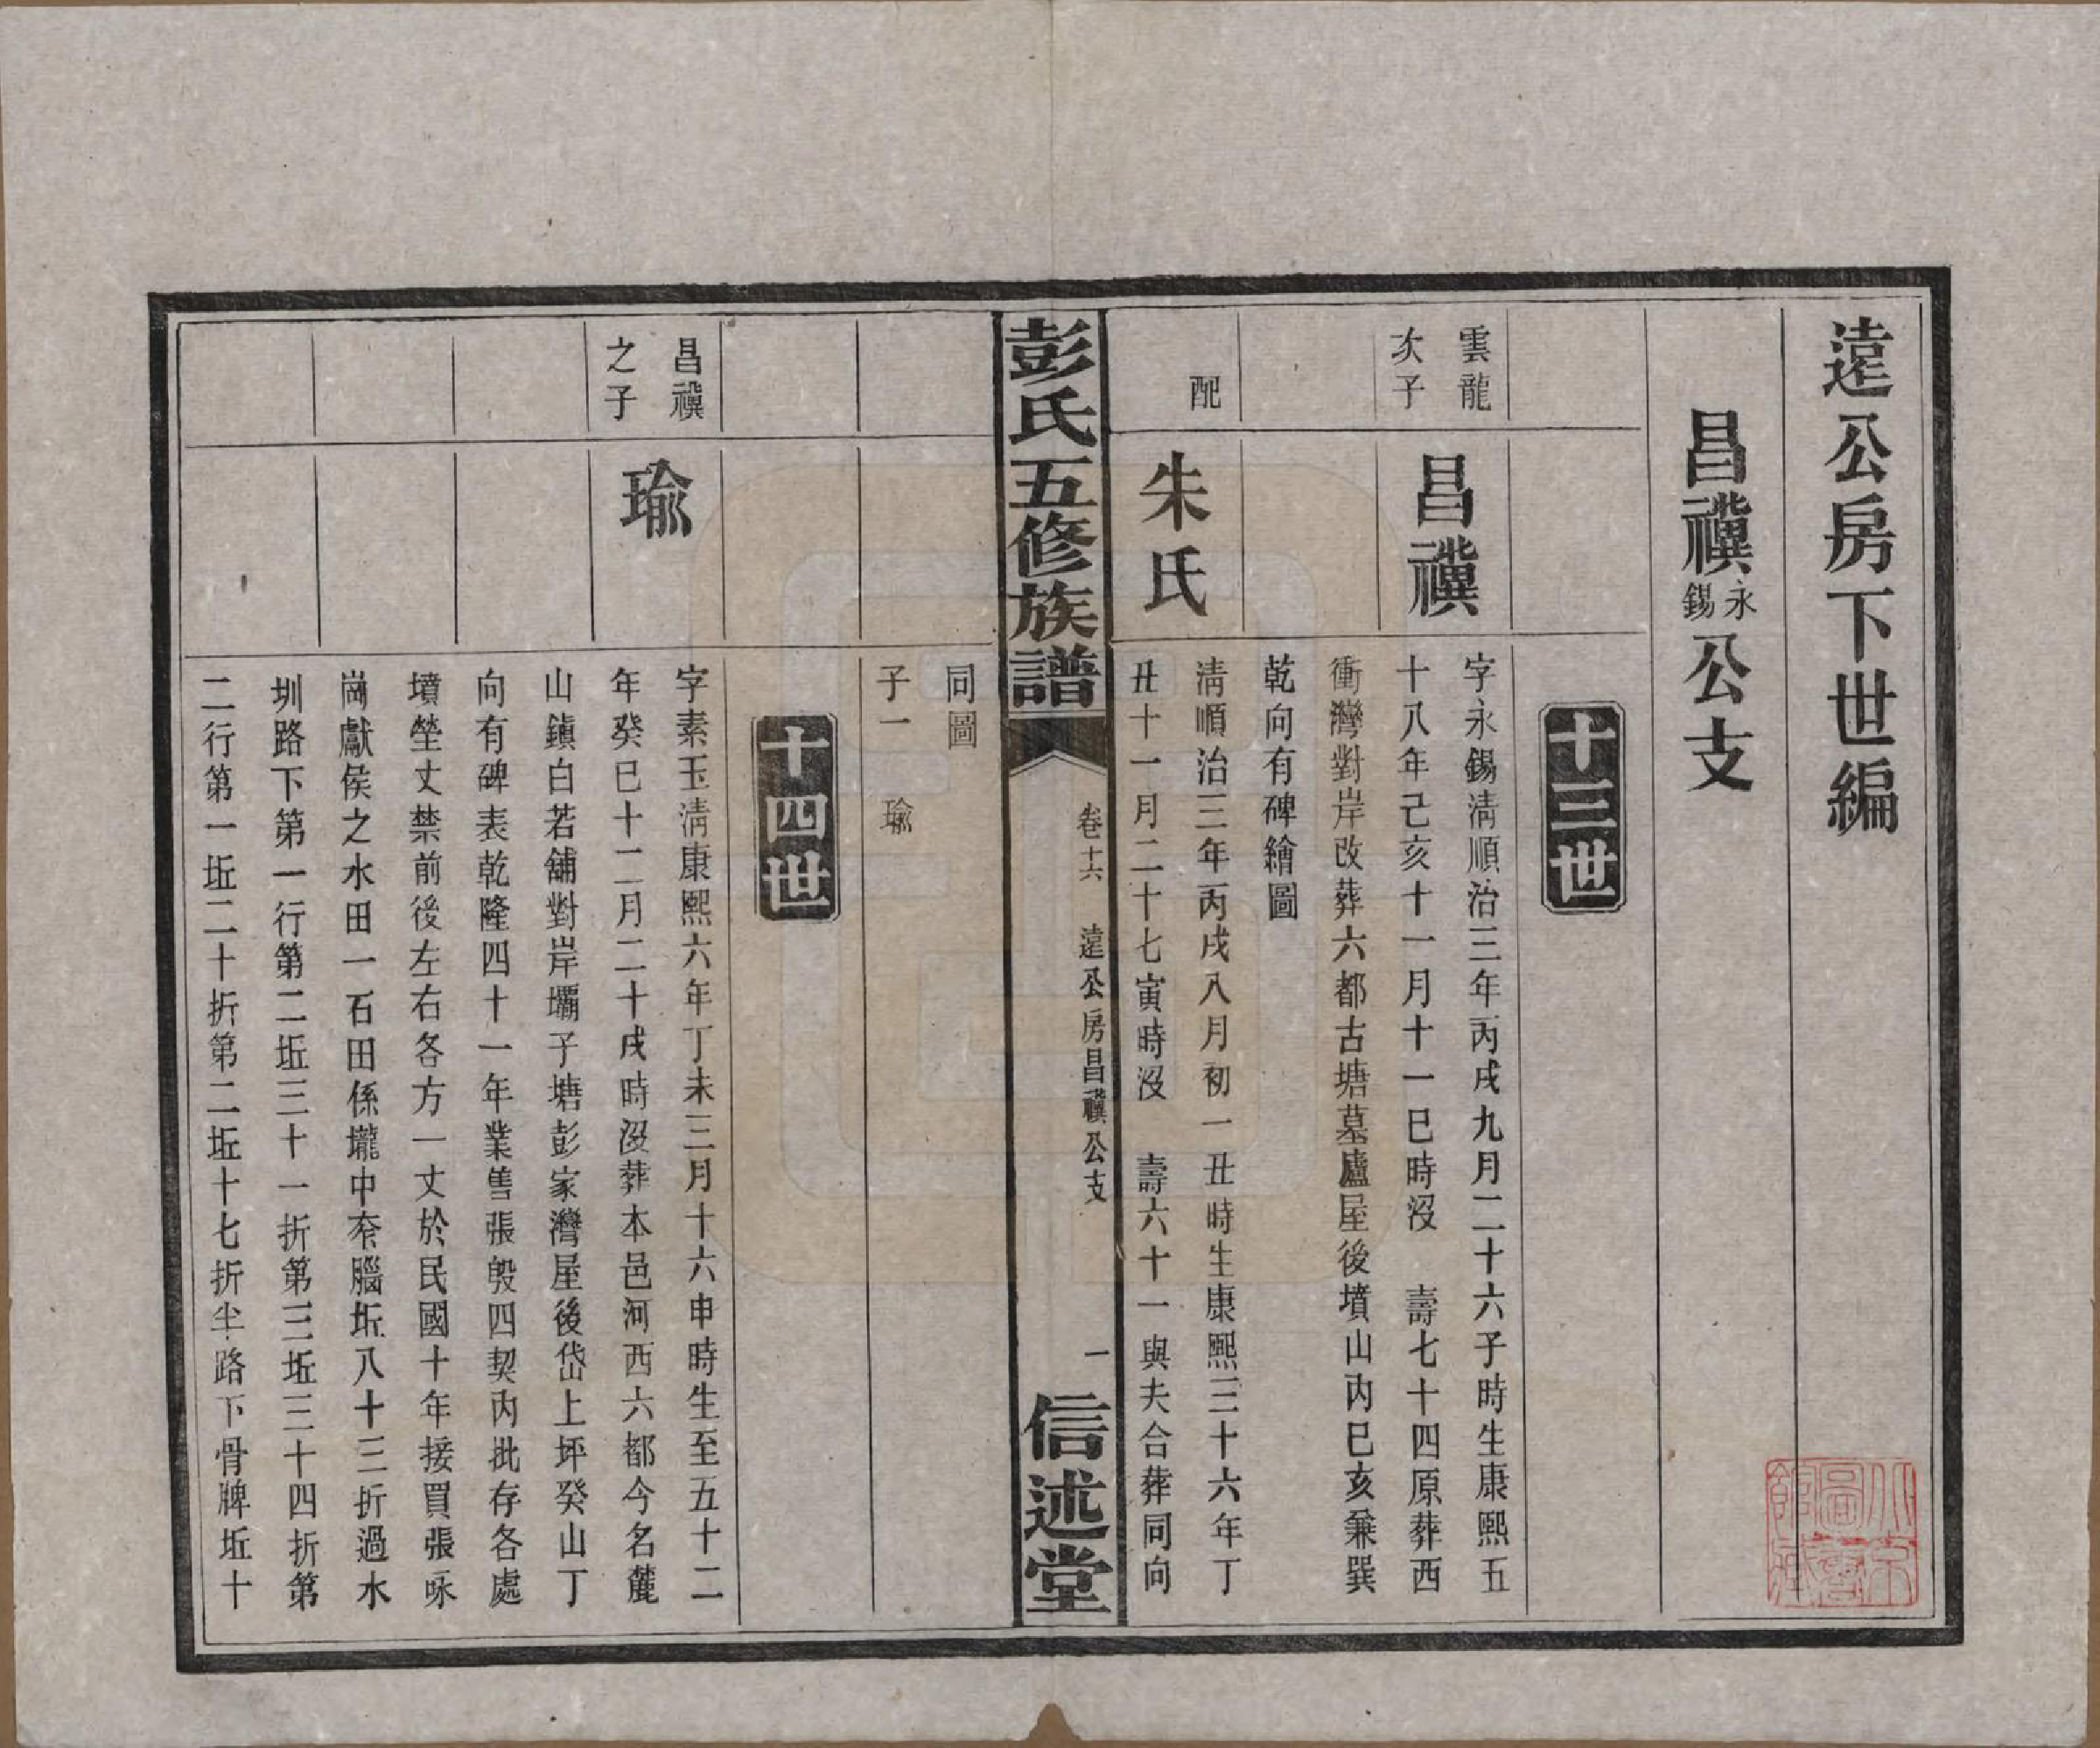 遠公房下世編
昌禩永錫公支
十三世
雲龍次子
昌禩
字永錫淸順治三年丙戌九月二十六子時生康熙五
十八年己亥十一月十一巳時沒 壽七十四原葬西
衝灣對岸改葬六都古塘墓廬屋後墳山內巳亥兼巽
乾向有碑繪圖
配
朱氏
淸順治三年丙戌八月初一丑時生康熙三十六年丁
丑十一月二十七寅時沒 壽六十一與夫合葬同向
彭氏五修族譜
卷十六 遠公房昌禩公支
一
信述堂
同圖
子一 瑜
十四世
昌禩之子
瑜
字素玉淸康熙六年丁未三月十六申時生至五十二
年癸巳十二月二十戌時沒葬本邑河西六都今名麓
山鎮白若舖對岸壩子塘彭家灣屋後岱上坪癸山丁
向有碑表乾隆四十一年業售張殷四契內批存各處
墳塋丈禁前後左右各方一丈於民國十年接買張咏
崗獻侯之水田一石田係壠中夵腦坵八十三折過水
圳路下第一行第二坵三十一折第三坵三十四折第
二行第一坵二十折第二坵十七折半路下骨牌坵十